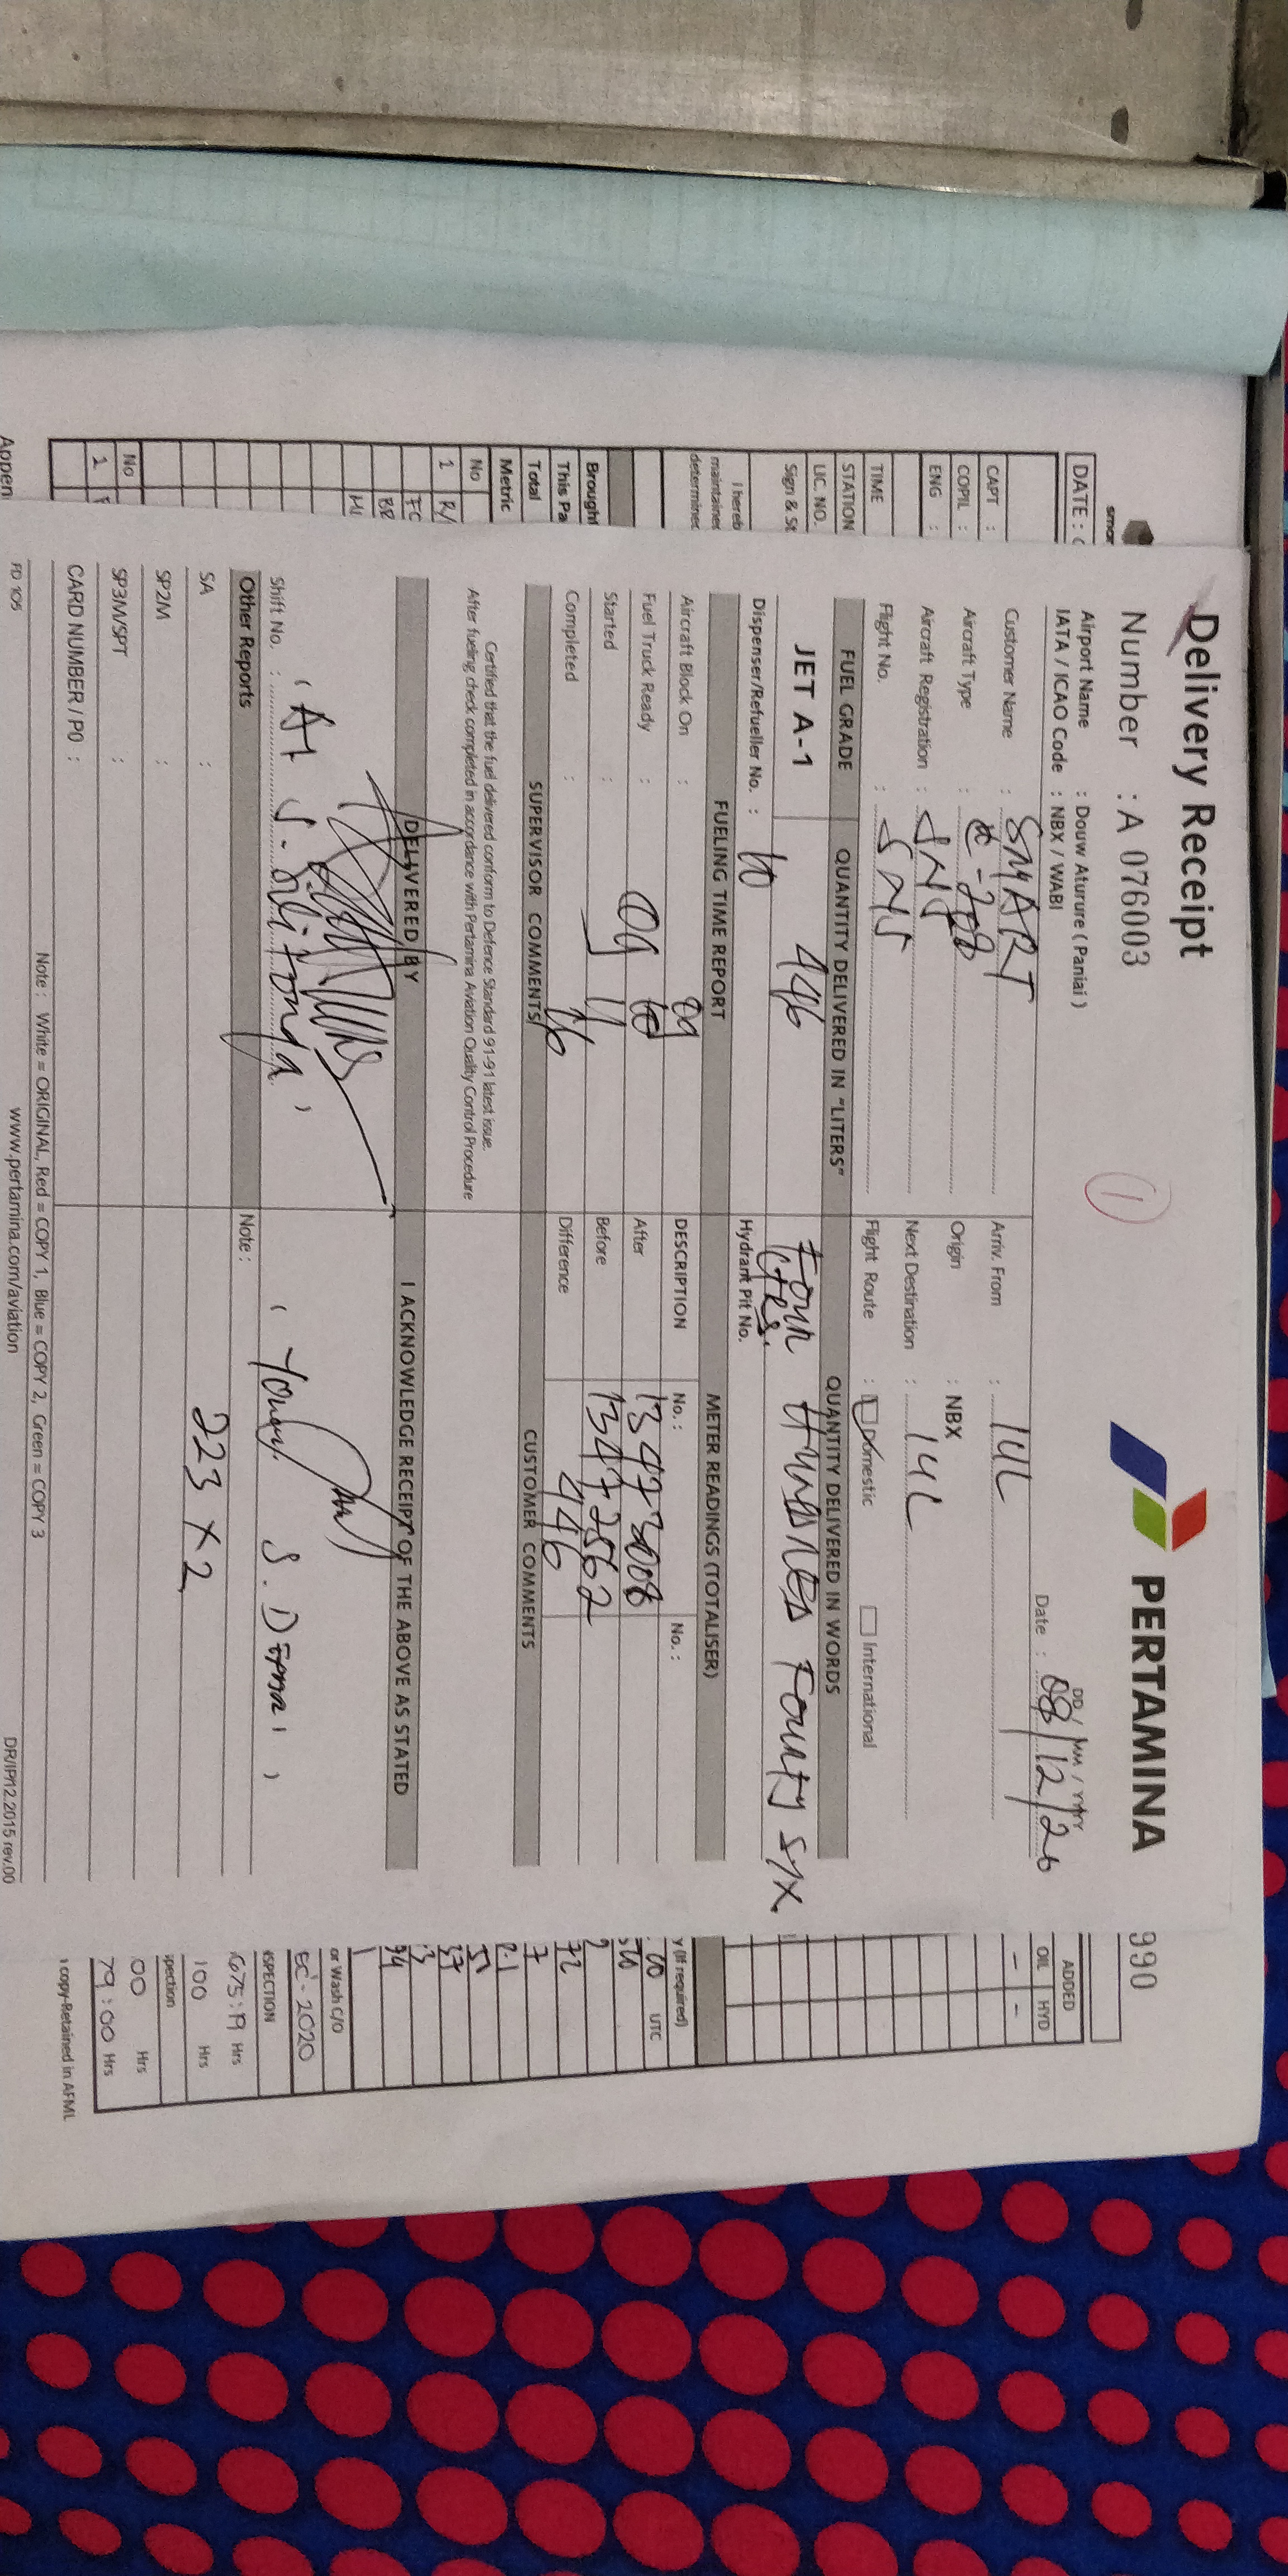 Delivery Receipt
PERTAMINA
Number : A 076003
990
Airport Name : Douw Aturure ( Paniai )
IATA / ICAO Code : NBX / WABI
DD / MM / YYYY
Date : 08/12/20
1
Customer Name : SMART
Arriv. From : IUL
Aircraft Type : C-208
Origin : NBX
Aircraft Registration : SNS
Next Destination : IUL
Flight No. : SNS
Flight Route : Domestic International
FUEL GRADE
QUANTITY DELIVERED IN "LITERS"
QUANTITY DELIVERED IN WORDS
JET A-1
446
Four Hundred Fourty Six
Ltrs.
Dispenser/Refueller No. : 10
Hydrant Pit No.
FUELING TIME REPORT
METER READINGS (TOTALISER)
Aircraft Block On : 09
DESCRIPTION No. : No. :
Fuel Truck Ready : 09 10
After 13473008
Started : 11
Before 13472562
Completed : 16
Difference 446
SUPERVISOR COMMENTS
CUSTOMER COMMENTS
Certified that the fuel delivered conform to Defence Standard 91-91 latest issue.
After fueling check completed in accordance with Pertamina Aviation Quality Control Procedure
DELIVERED BY
I ACKNOWLEDGE RECEIPT OF THE ABOVE AS STATED
Shift No. :
Other Reports
Note :
SA :
223 x 2
SP2M :
SP3M/SPT :
CARD NUMBER / PO :
Note : White = ORIGINAL, Red = COPY 1, Blue = COPY 2, Green = COPY 3
FD 105
www.pertamina.com/aviation
DR/IP/12.2015 rev.00
smar
DATE :
CAPT :
COPIL :
ENG :
TIME
STATION
LIC. NO.
Sign & St
I hereb
maintaine
determined
Brought
This Pa
Total
Metric
No
1 R/
No
1
Appen
ADDED
OIL HYD
- -
y (If required)
UTC
or Wash C/O
EC - 2020
SPECTION
675:19 Hrs
100 Hrs
pection
00 Hrs
79:00 Hrs
copy-Retained in AFML